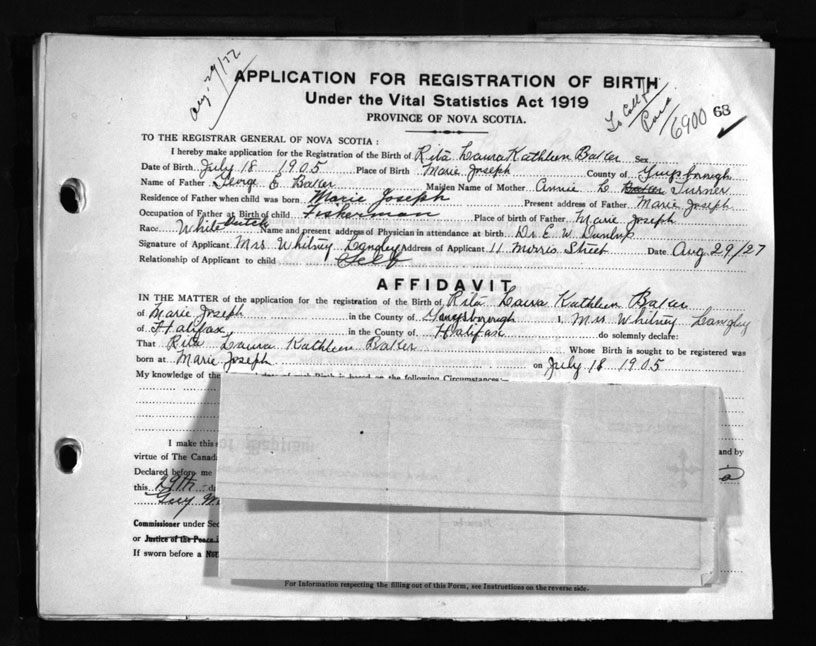 Aug. 29/27
APPLICATION FOR REGISTRATION OF BIRTH
Under the Vital Statistics Act 1919
PROVINCE OF NOVA SCOTIA.
Paid
/6900
68
TO THE REGISTRAR GENERAL OF NOVA SCOTIA :
I hereby make application for the Registration of the Birth of Rita Laura Kathleen Baker Sex
Date of Birth July 18 1905 Place of Birth Marie Joseph County of Guysborough
Name of Father George E Baker Maiden Name of Mother Annie D. Baker Turner
Residence of Father when child was born Marie Joseph Present address of Father Marie Joseph
Occupation of Father at Birth of child Fisherman Place of birth of Father Marie Joseph
Race White Dutch Name and present address of Physician in attendance at birth Dr E. W. Dunlop
Signature of Applicant Mrs Whitney Langley Address of Applicant 11 Morris Street Date Aug 29/27
Relationship of Applicant to child Self
AFFIDAVIT
IN THE MATTER of the application for the registration of the Birth of Rita Laura Kathleen Baker
of Marie Joseph in the County of Guysborough I, Mrs Whitney Langley
of Halifax in the County of Halifax do solemnly declare:
That Rita Laura Kathleen Baker Whose Birth is sought to be registered was
born at Marie Joseph on July 18 1905
My knowledge of the date of such Birth is based on the following Circumstances:—
I make this
and by
virtue of The Canada
Declared before me
this 29th d
Guy M
Commissioner under Sec
or Justice of the Peace i
If sworn before a Not
For Information respecting the filling out of this Form, see Instructions on the reverse side.